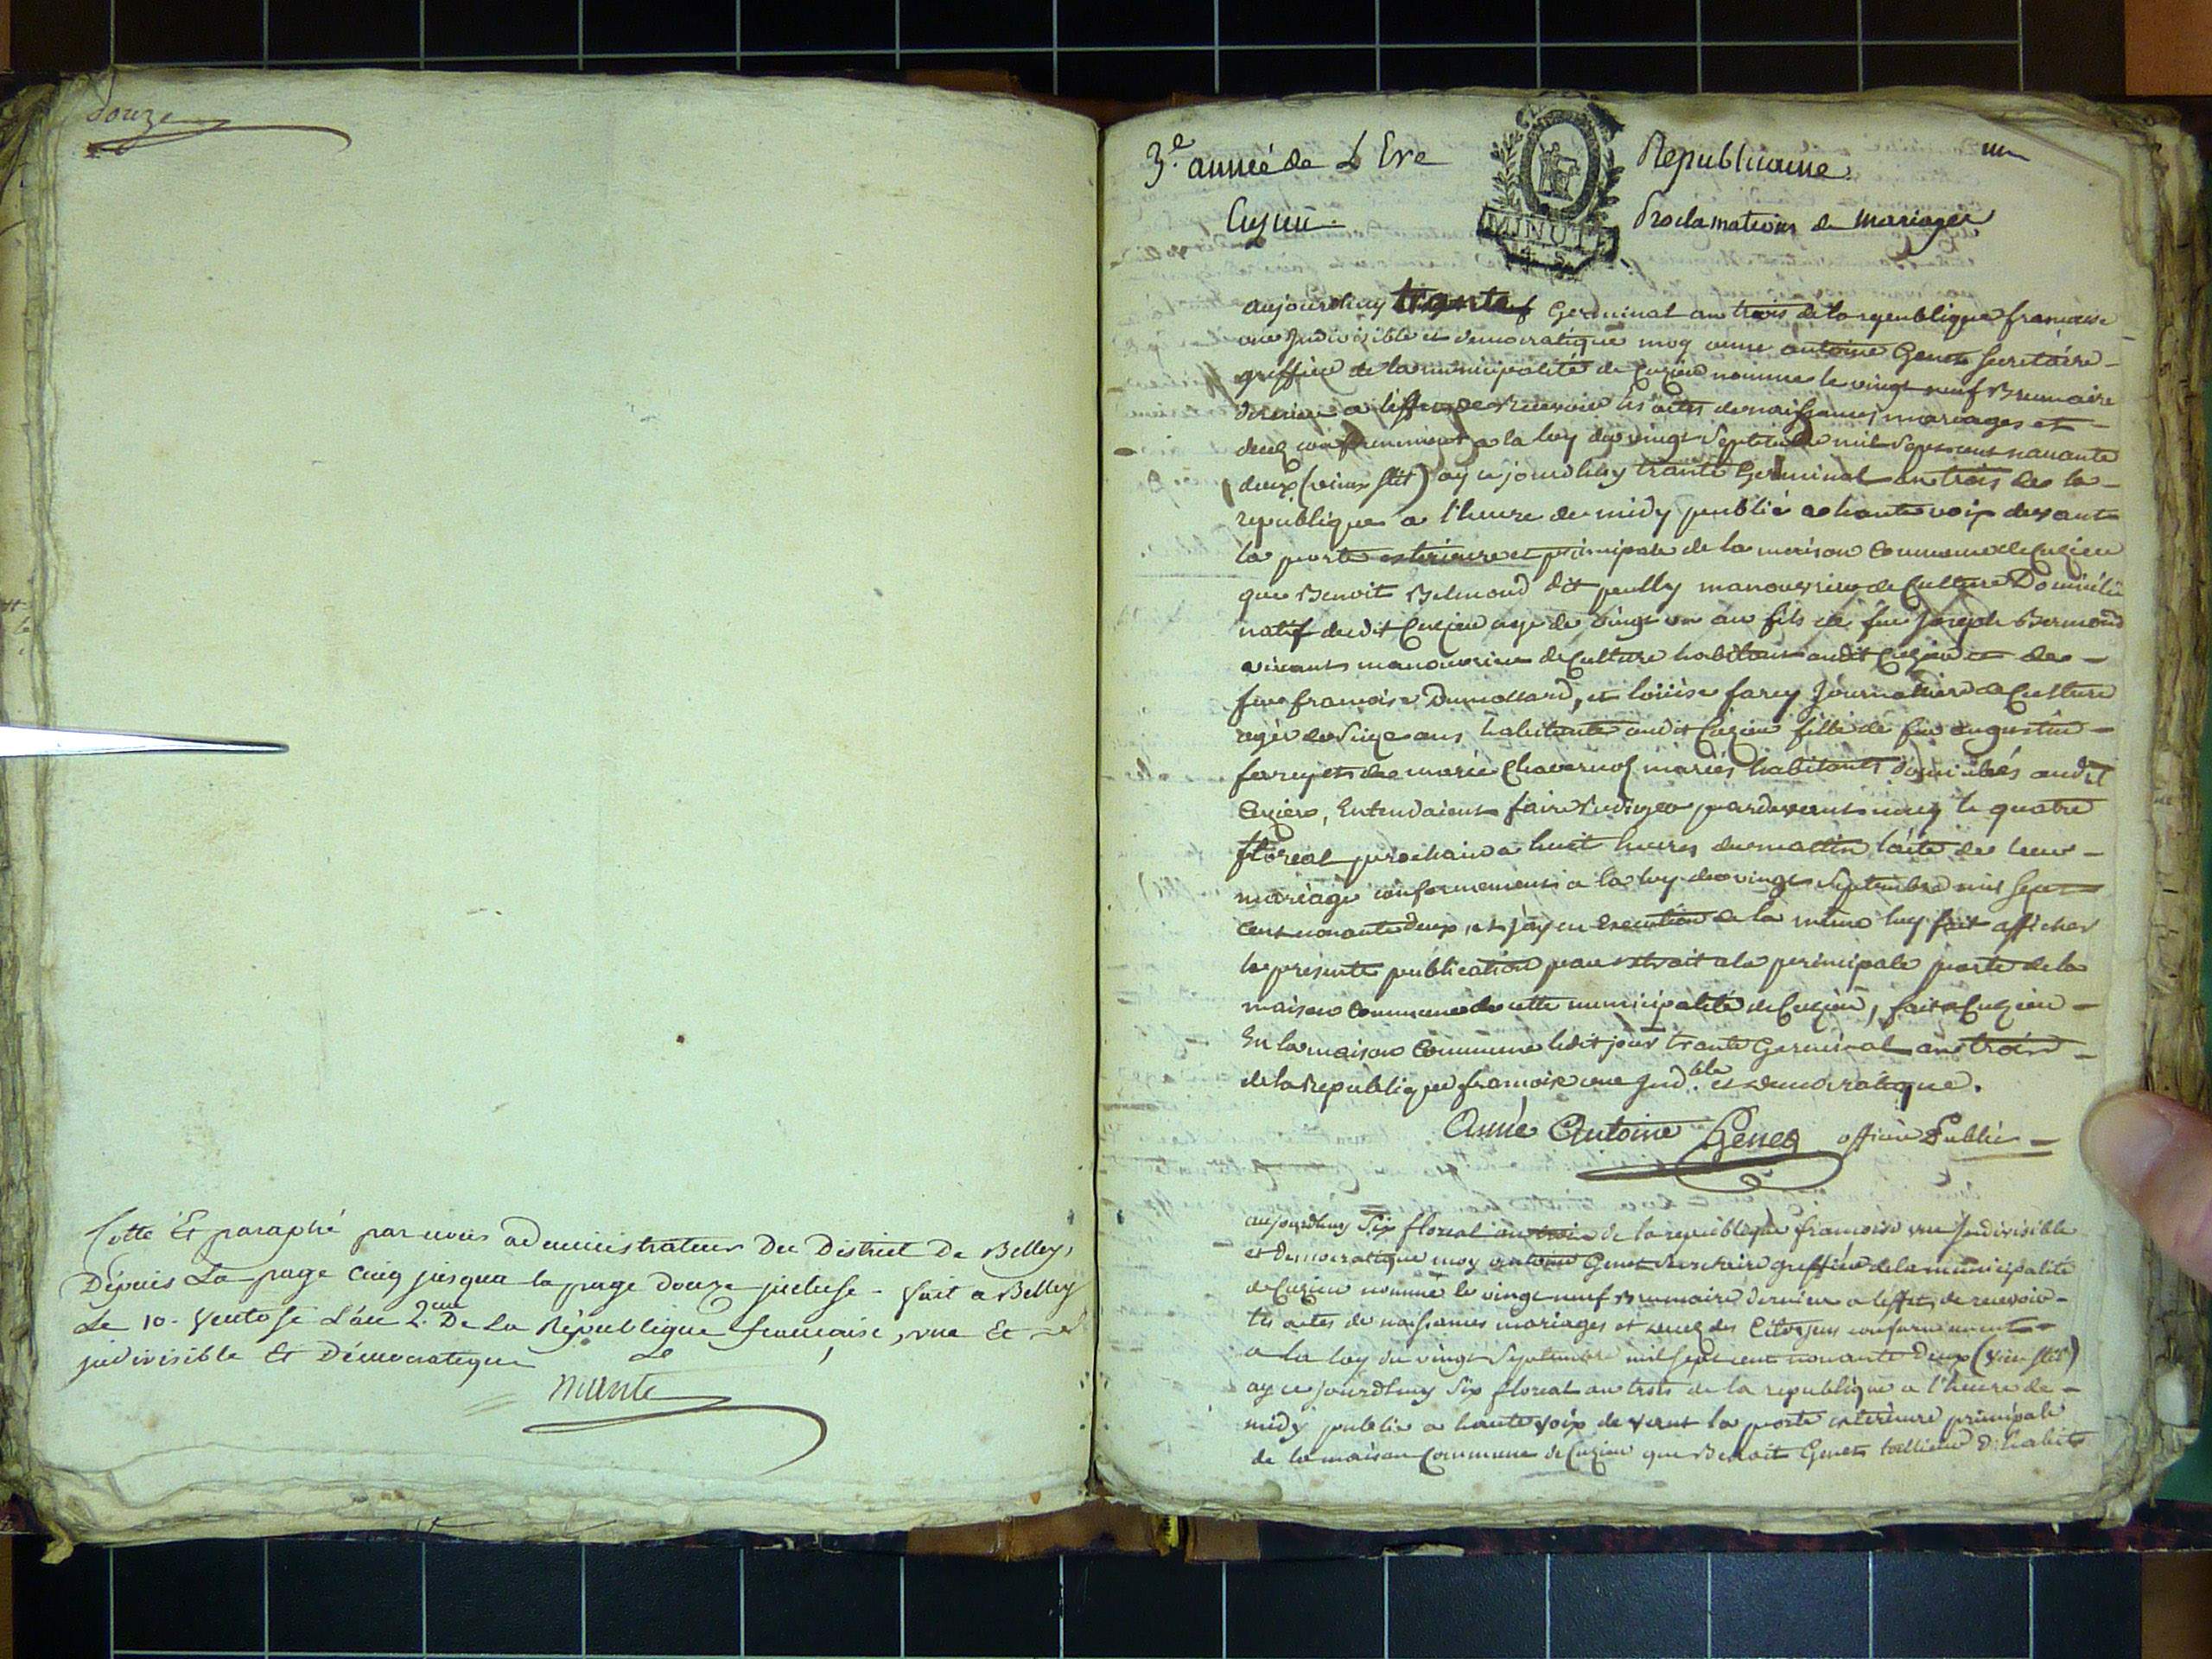 douze
Cotté Et paraphé par nous administrateur Du District De Belley,
Depuis La page Cinq jusqua la page Douze jncluse - fait a Belley
Le 10. Ventose L'an 2.me De La République francaise, une Et
jndivisible Et Démocratique
3.e année de L Ere Republicaine un
Cuzieu. Proclamations de mariages
MINUT
aujourdhuy trante Germinal an trois de la republique francaise
une Jndivisible et democratique moy anne antoine Genet secretaire
greffier de la municipalité de Cuzieu nomme le vingt neuf Brumaire
dernier a leffet de recevoir les actes de naissances mariages et
decez conformement a la loy du vingt Septembre mil Sept cent nonante
deux (vieux stil) ay cejourdhuy trante Germinal an trois de la
republique a l'heure de midy publié a haute voix devant
la porte exterieure et principale de la maison Commune de Cuzieu
que Benoit Belmond dit peully manouvrier de Culture Domicilié
natif dudit Cuzieu age de vingt un an fils de feu Joseph Bermond
vivant manouvrier de Culture habitant audit Cuzieu et de
feue francoise Dumollard, et loüise farcy Journalliere de Culture
agée de Seize ans habitante audit Cuzieu fille de feu augustin
farcy et de marie Chavernol mariés habitants domiciliés audit
Cuzieu, Entendaient faire Rediger pardevant moy le quatre
floreal prochain a huit heures du mattin l'acte de leur
mariage conformement a la loy du vingt Septembre mil Sept
cent nonante deux, et j'ay en execution de la même loy fait afficher
la présente publication par extrait a la principale porte de la
maison Commune de cette municipalité de Cuzieu, fait a Cuzieu
En la maison Commune ledit jour trante Germinal an trois
de la Republique francoise une Jnd.ble et democratique.
Anne Antoine Genet officier Public
aujourdhuy Six floreal an trois de la republique francoise une Jndivisible
et democratique moy antoine Genet Secretaire greffier de la municipalité
de Cuzieu nommé le vingt neuf Brumaire dernier a leffet de recevoir
les actes de naissances mariages et decez des Citoyens conformement
a la loy du vingt Septembre mil Sept cent nonante Deux (vieu stil)
ay cejourdhuy Six floreal an trois de la republique a l'heure de
midy publie a haute voix devant la porte exterieure principale
de la maison Commune de Cuzieu que Benoit Genet tallieur D'habits